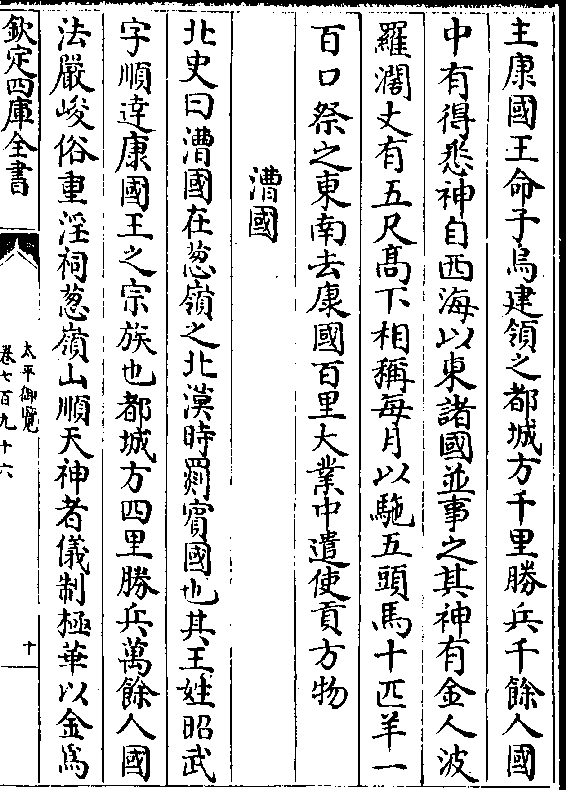 主康國王命子烏建領之都城方千里勝兵千餘人國
中有得悉神自西海以東諸國並事之其神有金人波
羅濶丈有五尺髙下相稱每月以駞五頭馬十匹羊一
百口祭之東南去康國百里大業中遣使貢方物
漕國
北史曰漕國在葱嶺之北漢時罽賓國也其王姓昭武
字順達康國王之宗族也都城方四里勝兵萬餘人國
法嚴峻俗重淫祠葱嶺山順天神者儀制極華以金為
欽定四庫全書
太平御覽
卷七百九十六
十